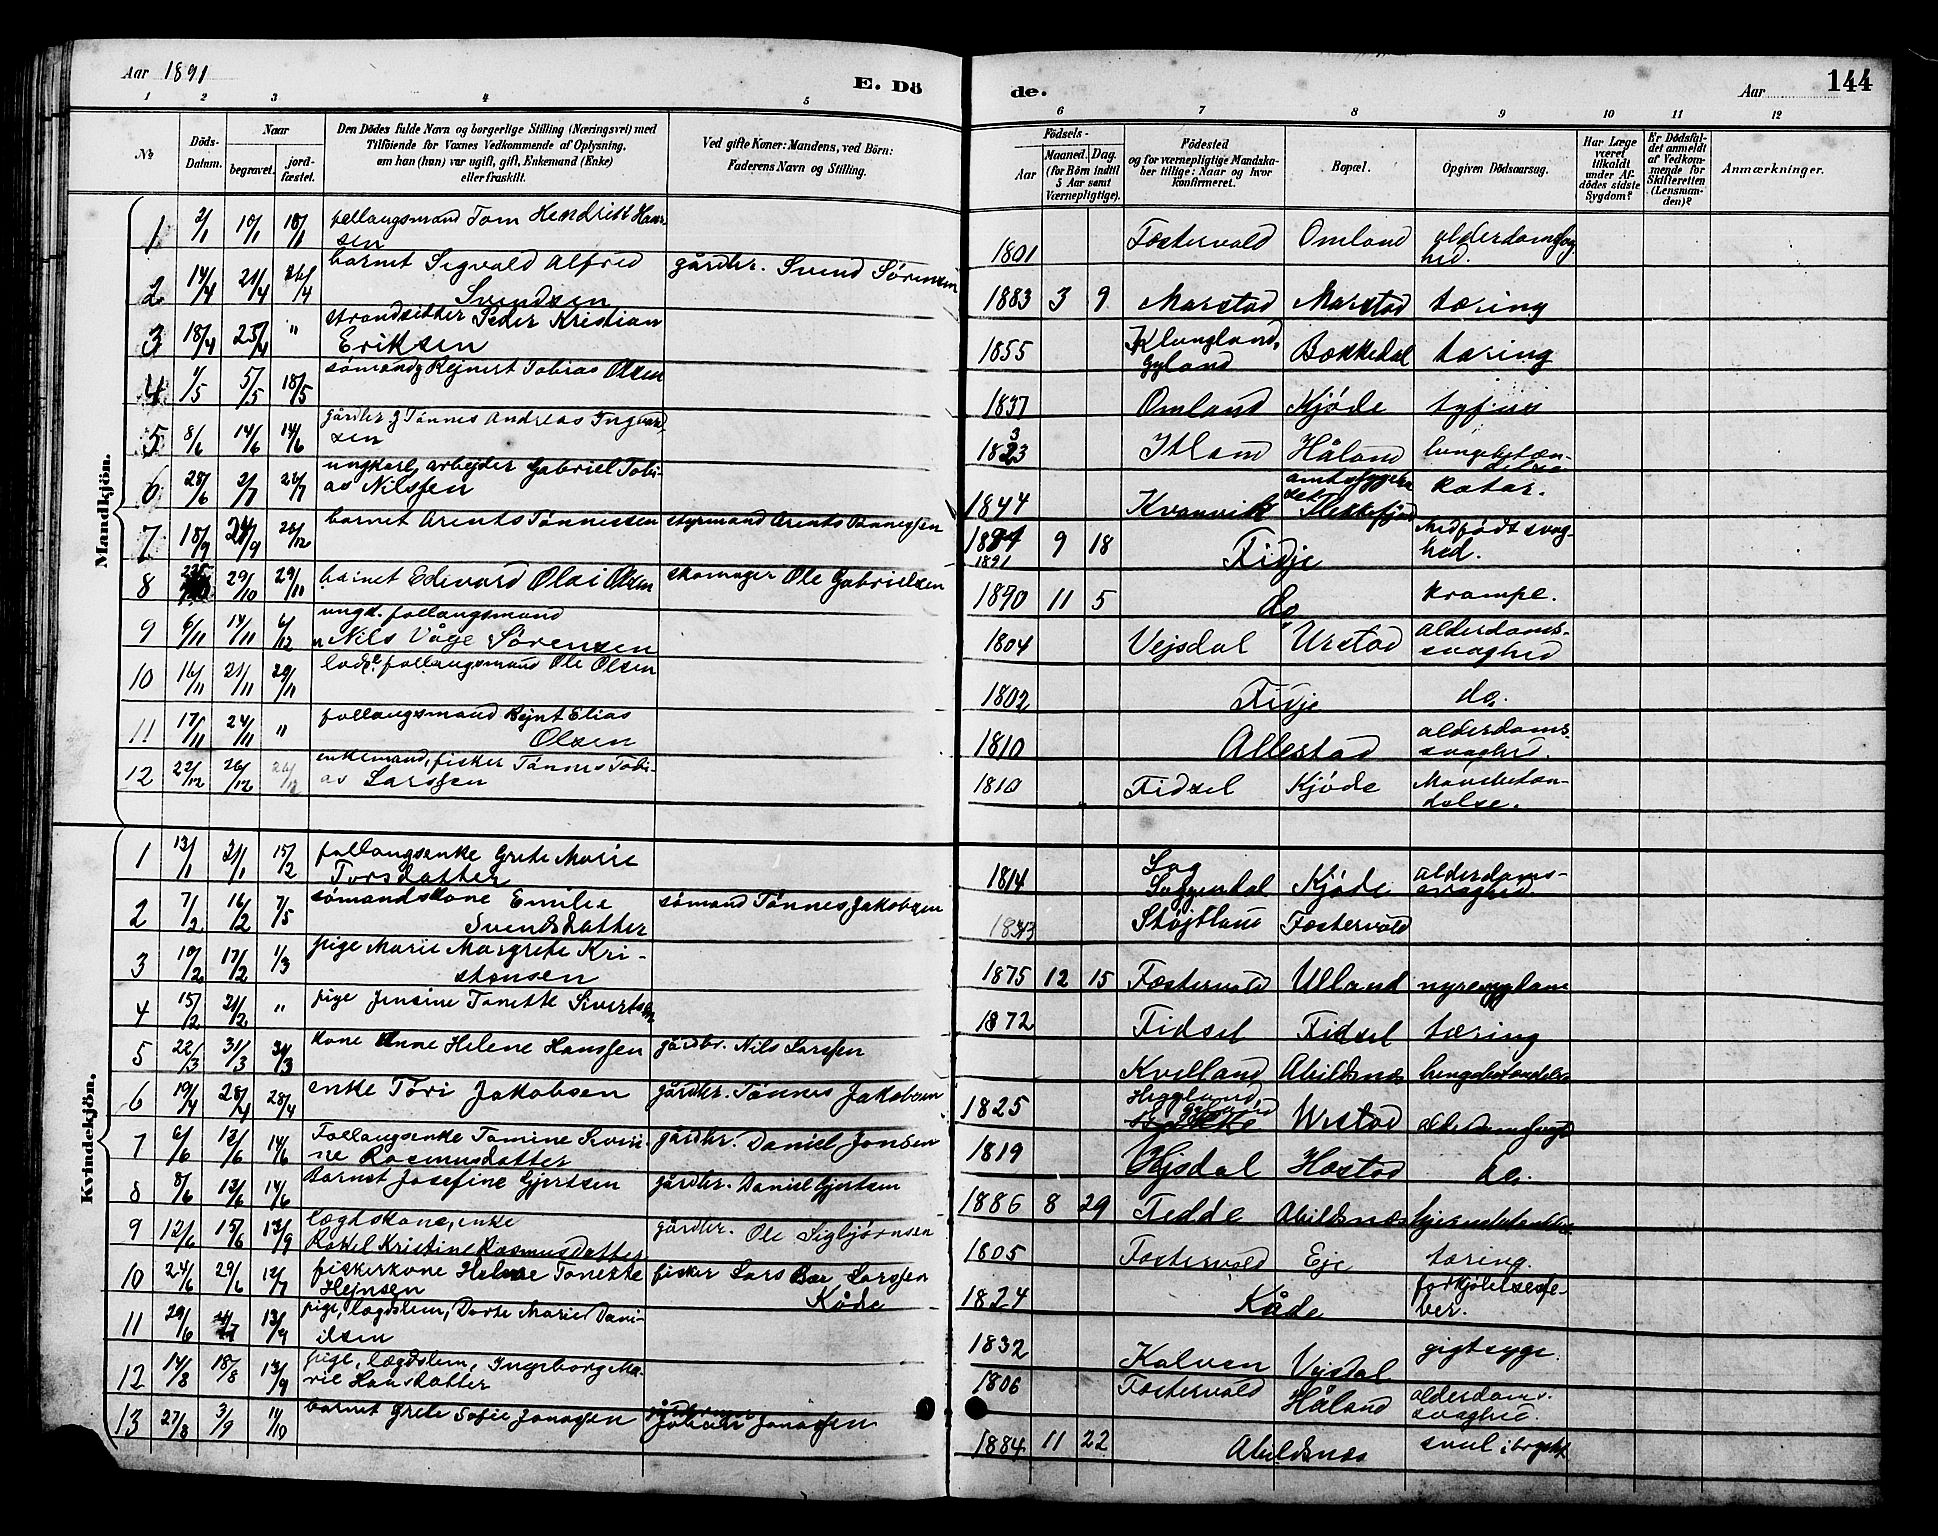 Aar 1891
E. Dö
de.
Aar
144
1 2 3 4 5 6 7 8 9 10 11 12
No.
Döds-Datum.
Naar
begravet.
jord-fæstet.
Den Dödes fulde Navn og borgerlige Stilling (Næringsvei) med
Tilföiende for Voxnes Vedkommende af Oplysning,
om han (hun) var ugift, gift, Enkemand (Enke)
eller fraskilt.
Ved gifte Koner: Mandens, ved Börn:
Faderens Navn og Stilling.
Födsels-
Aar
Maaned. Dag.
(for Börn indtil
5 Aar samt
Værnepligtige).
Födested
og for værnepligtige Mandska-
ber tillige: Naar og hvor
konfirmeret.
Bopæl.
Opgiven Dödsaarsag.
Har Læge
været
tilkaldt
under Af-
dödes sidste
Sygdom?
Er Dödsfal-
det anmeldt
af Vedkom-
mende for
Skifteretten
(Lensman-
den)?
Anmærkninger.
Mandkjön.
1 2/1 10/1 18/1 follaugsmand Tom Hendrik Han-
sen 1801 Fostervold Omland alderdomssvag-
hed.
2 14/4 21/4 26/4 barnet Sigvald Alfred
Svendsen gårdbr. Svend Sørensen 1883 3 9 Marstad Marstad tæring
3 18/4 25/4 " strandsitter Peder Kristian
Eriksen 1855 Klungland,
Gyland Bækkedal tæring
4 1/5 5/5 18/5 sømand Rejnert Tobias Olsen 1837 Omland Kjøde tyfus
5 8/6 14/6 14/6 gårdbr. Tønnes Andreas Ingvard-
sen 1823 Itland Håland lungebetæn-
delse
6 28/6 2/7 26/7 ungkarl, arbejder Gabriel Tobi-
as Nilssen 1844 Kvanvik amtssygehu-
set Flekkefjord katar.
7 18/9 24/9 26/12 barnet Arents Tønnessen styrmand Arents Tønnessen 1891 9 18 Fidje Medfødt svag-
hed.
8 29/10 29/11 barnet Edvard Olai Olsen skomager Ole Gabrielsen 1890 11 5 do krampe.
9 6/11 14/11 6/12 ungk. follaugsmand
Nils Våge Sørensen 1804 Vejsdal Urstad alderdoms-
svaghed
10 16/11 21/11 29/11 follaugsmand Ole Olsen 1802 Fidje do.
11 17/11 24/11 " follaugsmand Rejnt Elias
Olsen 1810 Allestad alderdoms-
svaghed.
12 22/12 26/12 26/12 enkemand, fisker Tønnes Tobi-
as Larssen 1810 Fidsel Kjøde Mavebetæn-
delse.
Kvindekjön.
1 13/1 21/1 15/2 follaugsenke Grete Marie
Torsdatter 1814 Log
Soggendal Kjøde alderdoms-
svaghed
2 7/2 16/2 7/5 sømandskone Emilie
Svendsdatter sømand Tønnes Jakobsen Støjtland Fostervold
3 10/2 17/2 1/3 pige Marie Margrete Kri-
stensen 1875 12 15 Fostervold Ulland nyresygdom
4 15/2 21/2 " pige Jensine Tonette Sivertsen 1872 Fidsel Fidsel tæring
5 22/3 31/3 31/3 kone Anne Helene Hanssen gårdbr. Nils Larssen Kvelland Abildsnes lungebetændelse
6 19/4 28/4 28/4 enke Tøri Jakobsen gårdbr. Tønnes Jakobsen 1825 Heggland
Gyland Urstad alderdomssvagh.
7 6/6 12/6 14/6 Follaugsenke Tomine Severi-
ne Rasmusdatter gårdbr. Daniel Jonsen 1819 Ejsdal Hæstad do.
8 8/6 12/6 14/6 Barnet Josefine Gjertsen gårdbr. Daniel Gjertsen 1886 8 29 Fedde Abildsnes hjernebetændelse
9 12/6 15/6 13/9 lægdskone, enke
Rakel Kristine Rasmusdatter gårdbr. Ole Sigbjørnsen 1805 Fostervold Eje tæring.
10 24/6 29/6 12/7 fiskerkone Helene Tonette
Hejnsen fisker Lars Bær Larssen
Kåde 1824 Kåde forkjølelsesfe-
ber.
11 29/6 13/9 pige, lægdslem, Dorte Marie Dani-
ilsen 1832 Kalven Vejsdal gigtsyge.
12 14/8 18/8 13/9 pige, lægdslem, Ingeborg Ma-
rie Hansdatter 1806 Fostervold Håland alderdoms-
svaghed.
13 27/8 3/9 11/10 barnet Grete Sofie Jonassen Johan Jonassen 1884 11 22 Abildsnes